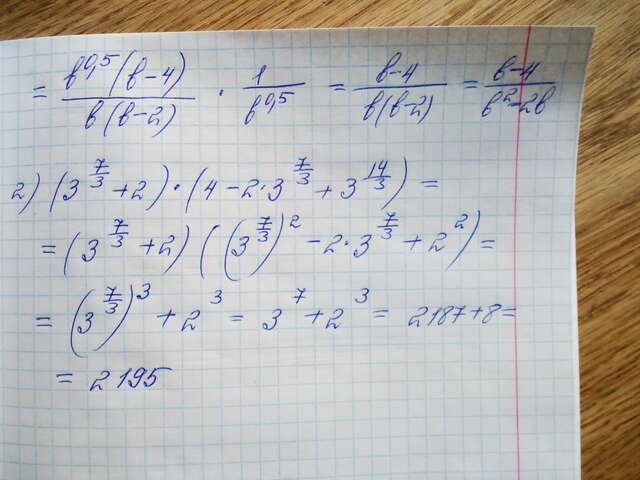 = в^0,5(в-4)/в(в-2) · 1/в^0,5 = в-4/в(в-2) = в-4/в^2-2в
2) (3^7/3+2)·(4-2·3^7/3+3^14/3) =
= (3^7/3+2)((3^7/3)^2-2·3^7/3+2^2) =
= (3^7/3)^3+2^3 = 3^7+2^3 = 2187+8=
= 2195